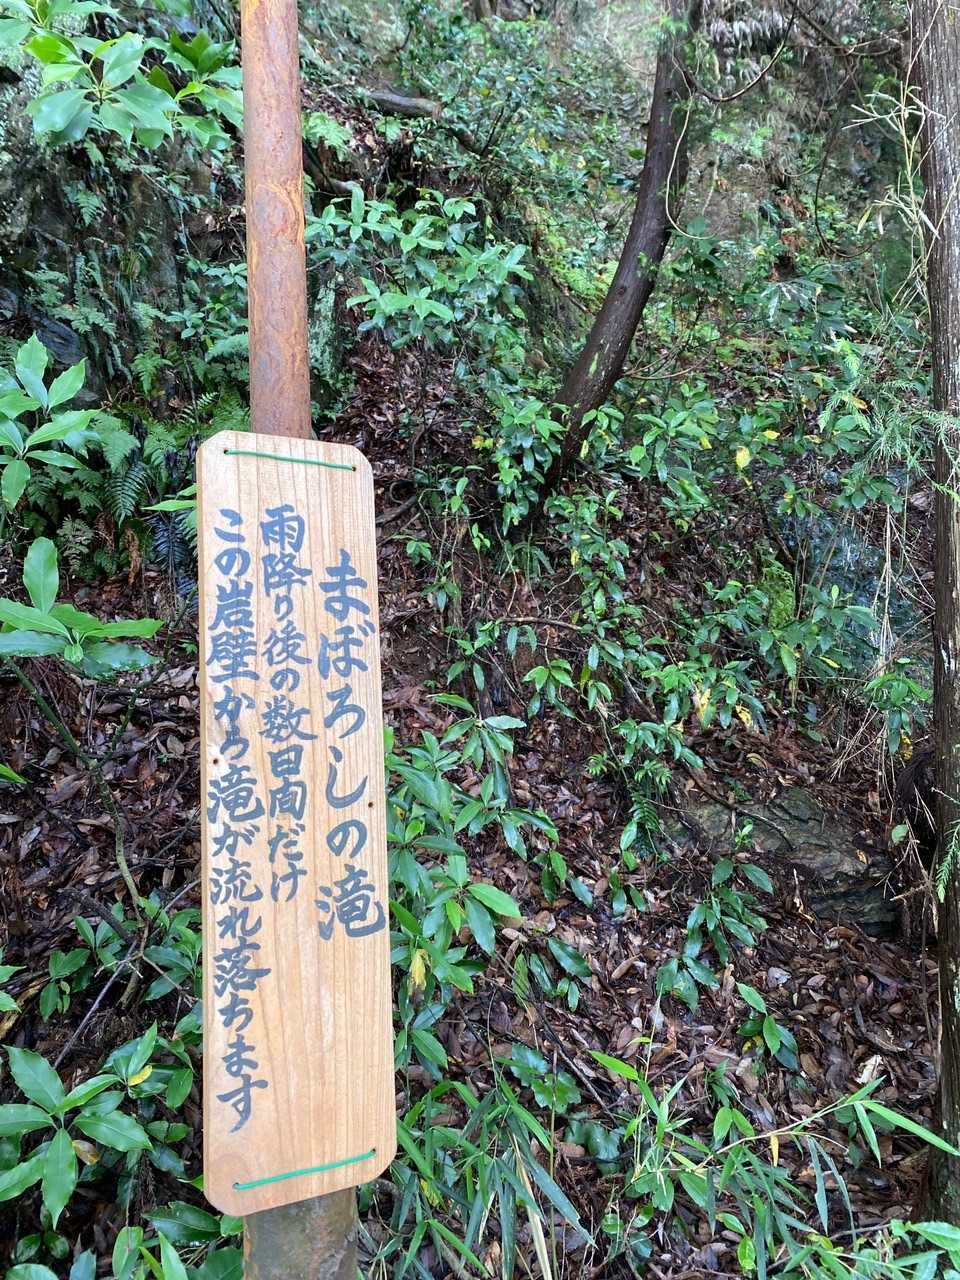 まぼろしの滝
雨降り後の数日間だけ
この岩壁から滝が流れ落ちます